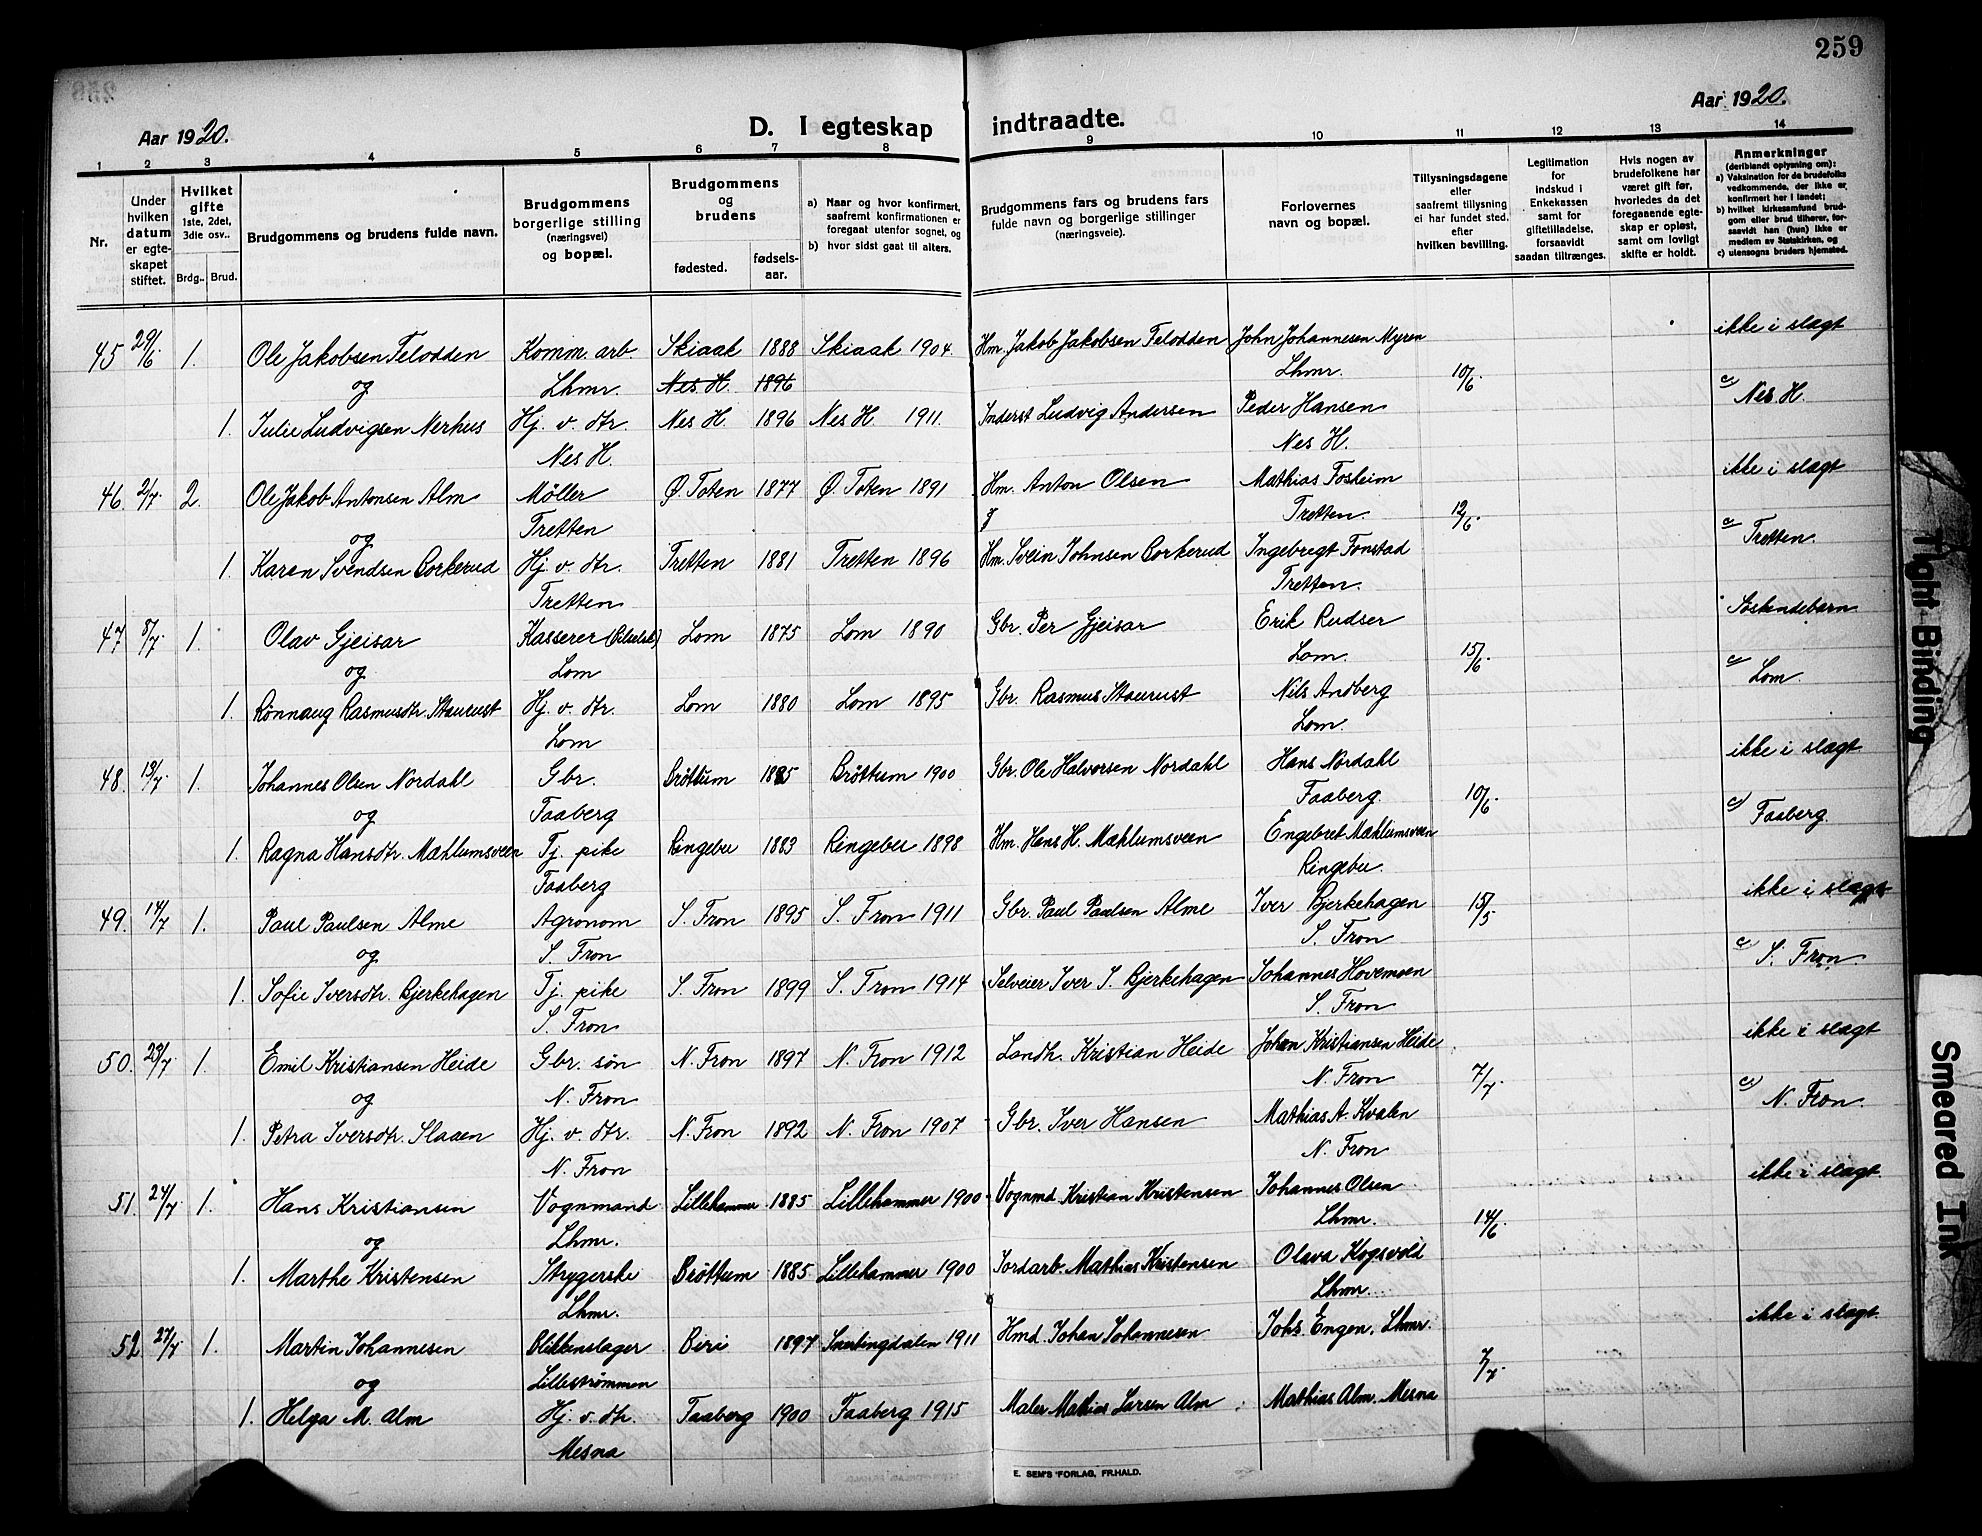 259
Aar 1920.
D. I egteskap indtraadte.
Aar 1920.
1 2 3 4 5 6 7 8 9 10 11 12 13 14
Nr.
Under hvilken datum er egteskapet stiftet.
Hvilket gifte 1ste, 2det, 3die osv..
Brdg.. Brud.
Brudgommens og brudens fulde navn.
Brudgommens borgerlige stilling (næringsvei) og bopæl.
Brudgommens og brudens
fødested. fødselsaar.
a) Naar og hvor konfirmert, saafremt konfirmationen er foregaat utenfor sognet, og
b) hvor sidst gaat til alters.
Brudgommens fars og brudens fars fulde navn og borgerlige stillinger (næringsveie).
Forlovernes navn og bopæl.
Tillysningsdagene eller saafremt tillysning ei har fundet sted. efter hvilken bevilling.
Legitimation for indskud i Enkekassen samt for giftetilladelse, forsaavidt saadan tiltrænges.
Hvis nogen av brudefolkene har været gift før, hvorledes da det foregaaende egteskap er opløst, samt om lovligt skifte er holdt.
Anmerkninger (deriblandt oplysning om):
a) Vaksination for de brudefolks vedkommende, der ikke er konfirmert her i landet;
b) hvilket kirkesamfund brudgom eller brud tilhører, forsaavidt han (hun) ikke er medlem av Statskirken, og
c) utensogns bruders hjemsted.
45 29/6. 1. Ole Jakobsen Felodden Komm. arb Skiaak 1888 Skiaak 1904. Hm. Jakob Jakobsen Felodden John Johannesen Myren ikke i slægt
og Lhmr. Nes H. 1896 Lhmr. 10/6. c) Nes H.
1. Julie Ludvigsen Nerhus Hj. v. dtr. Nes H. 1896 Nes H 1911. Inderst Ludvig Andersen Peder Hansen
Nes H. Nes H.
46. 2/7. 2. Ole Jakob Antonsen Alm Møller Ø. Toten 1877 Ø. Toten 1891 Hm. Anton Olsen Mathias Fosheim ikke i slægt
og Tretten Tretten. 12/6. c) Tretten.
1. Karen Svendsen Borkerud Hj. v. dtr. Tretten 1881 Tretten 1896 Hm. Svein Johnsen Borkerud Ingebregt Fonstad
Tretten Tretten.
47 8/7. 1. Olav Gjeisar Kasserer Lom 1875 Lom 1890 Gbr. Per Gjeisar Erik Rudser Søskendebarn
og Lom Lom. 15/6. c) Lom.
1. Rønnaug Rasmusdtr. Staurust Hj. v. dtr. Lom 1880 Lom 1895 Gbr. Rasmus Staurust Nils Andberg
Lom Lom.
48. 13/7. 1. Johannes Olsen Nordahl Gbr. Brøttum 1885 Brøttum 1900 Gbr. Ole Halvorsen Nordahl Hans Nordahl ikke i slægt
og Faaberg Faaberg. 10/6. c) Faaberg
1. Ragna Hansdtr. Mæhlumsveen Tj. pike Ringebu 1883 Ringebu 1898 Hm. Hans H. Mæhlumsveen Engebret Mæhlumsveen
Faaberg Ringebu.
49. 14/7 1. Paul Paulsen Alme Agronom S. Fron 1895 S. Fron 1911 Gbr. Paul Paulsen Alme Iver Bjerkehagen ikke i slægt
og S. Fron S. Fron 15/5. c) S. Fron.
1. Sofie Iversdtr. Bjerkehagen Tj. pike S. Fron 1899 S. Fron 1914 Selveier Iver S. Bjerkehagen Johannes Hovemoen
S. Fron S. Fron
50. 23/7. 1. Emil Kristiansen Heide Gbr. søn N. Fron 1897 N. Fron 1912 Landh. Kristian Heide Johan Kristiansen Heide ikke i slægt
og N. Fron N. Fron 7/7. c) N. Fron.
1. Petra Iversdtr. Slaaen Hj. v. dtr. N. Fron 1892 N. Fron 1907 Gbr. Iver Hansen Mathias A. Kvalen
N. Fron N. Fron
51. 24/7. 1. Hans Kristiansen Vognmand Lillehammer 1885 Lillehammer 1900 Vognmd. Kristian Kristensen Johannes Olsen ikke i slægt.
og Lhmr. Lhmr. 14/6
1. Marthe Kristensen Strygerske Brøttum 1885 Lillehammer 1900 Jordarb. Mathias Kristensen Olava Kogsvold
Lhmr. Lhmr.
52 27/7. 1. Martin Johannesen Blikkenslager Biri 1897 Snertingdalen 1911 Hmd. Johan Johannesen Johs. Engen, Lhmr. ikke i slægt.
og Lillestrømmen 7/7.
1. Helga M. Alm Hj. v. dtr. Faaberg 1900 Faaberg 1915 Maler Mathias Larsen Alm Mathias Alm. Mesna
Mesna
E. SEM'S FORLAG, FR.HALD.
Tight Binding
Smeared Ink